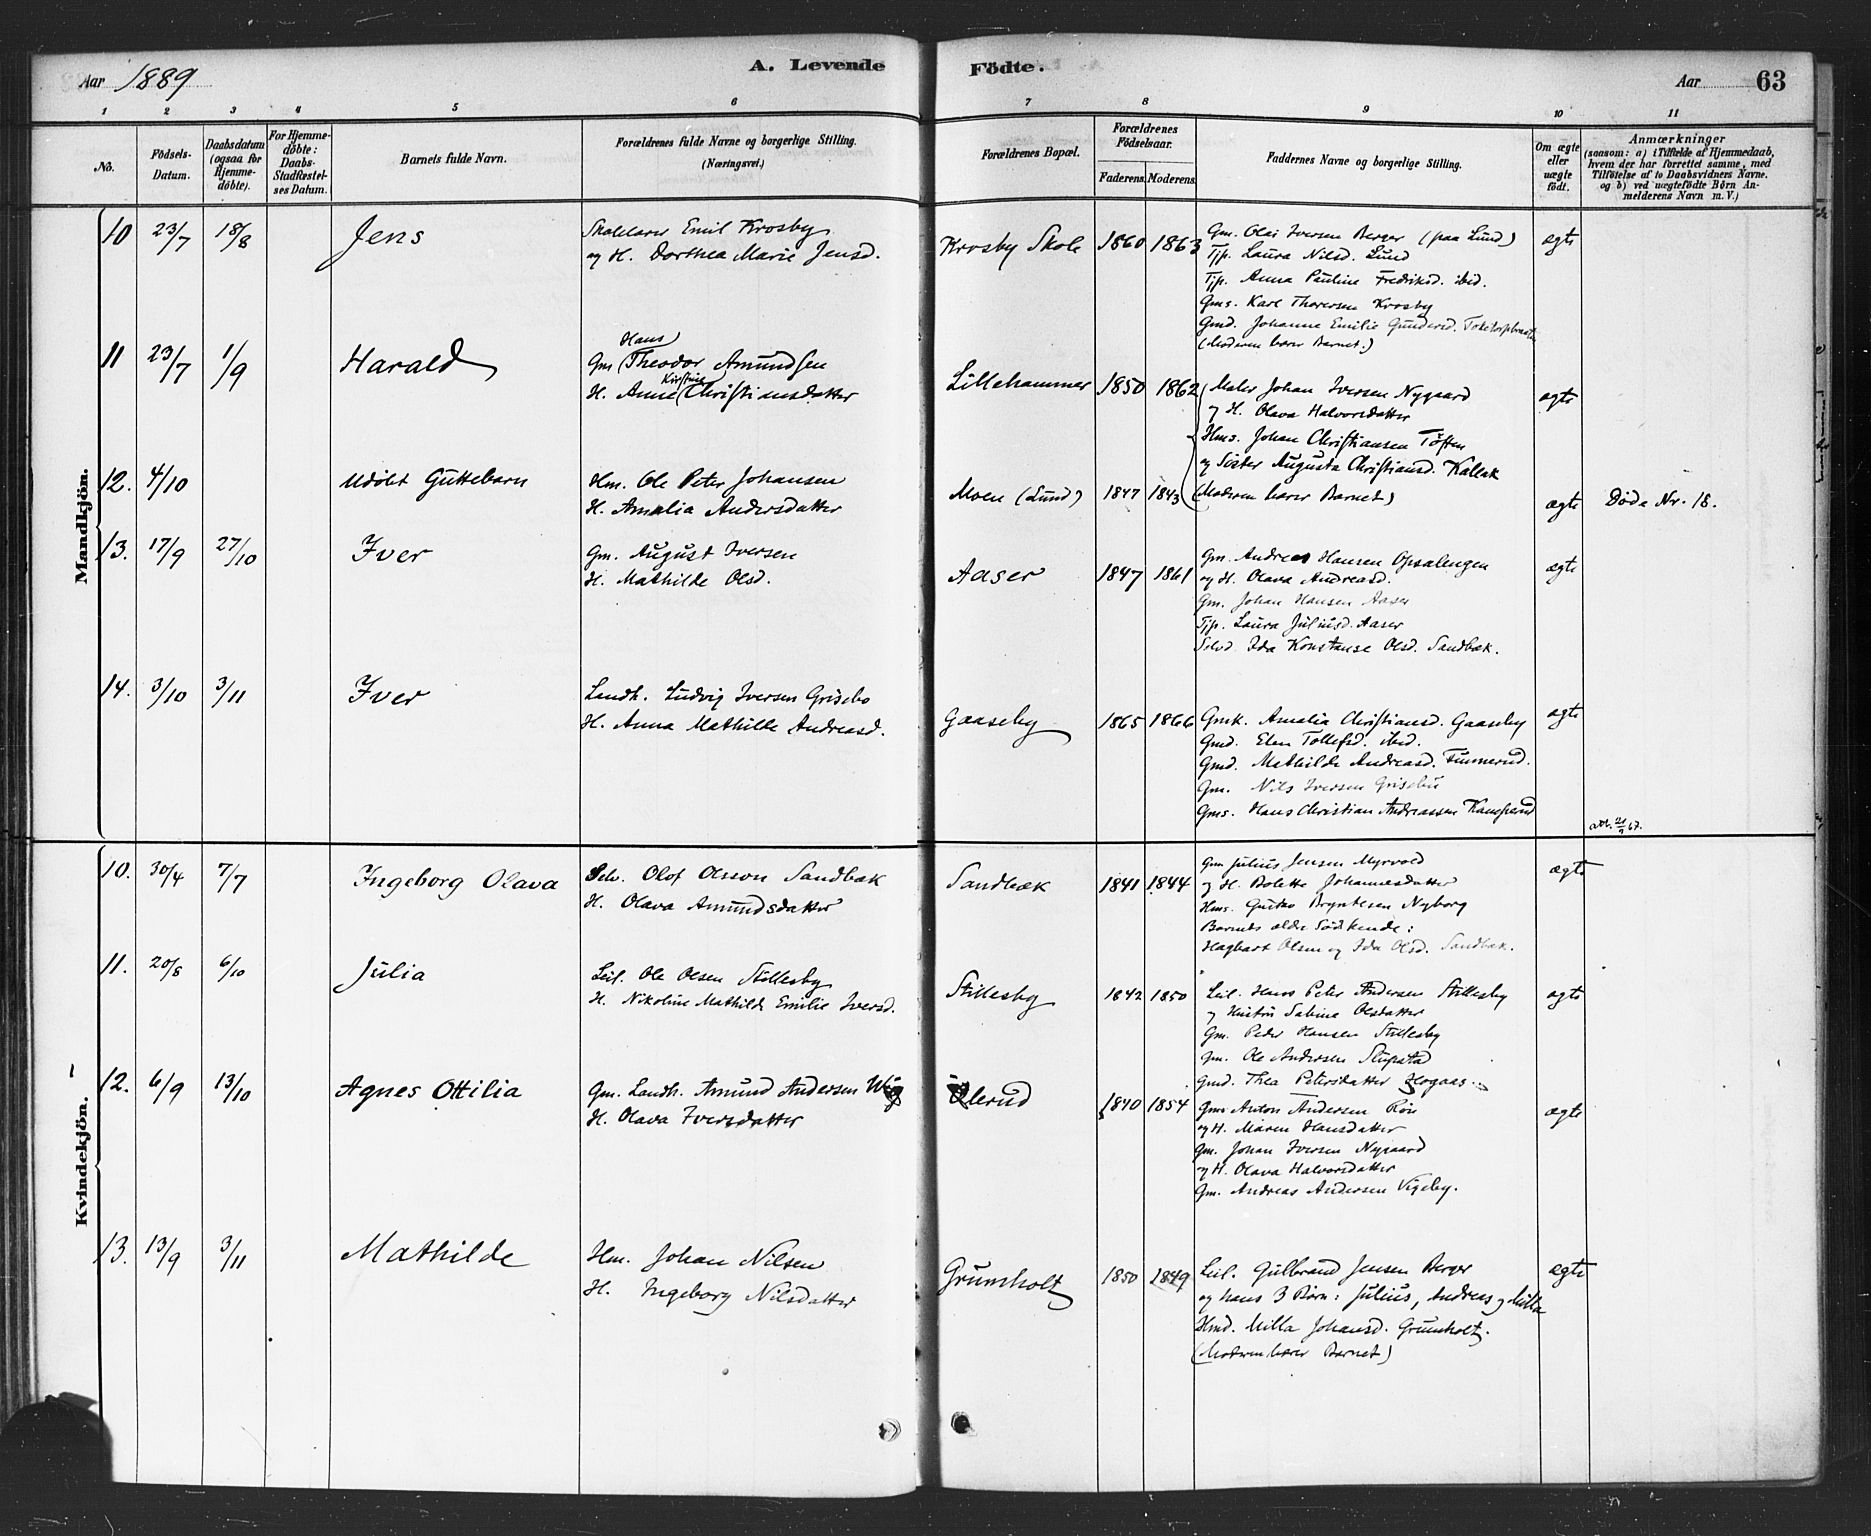 Aar 1889
A. Levende
Födte.
Aar
63
1 2 3 4 5 6 7 8 9 10 11
No.
Födsels-Datum.
Daabsdatum (ogsaa for Hjemmedöbte).
For Hjemmedöbte: Daabs-Stadfæstelses Datum.
Barnets fulde Navn.
Forældrenes fulde Navne og borgerlige Stilling. (Næringsvei.)
Forældrenes Bopæl.
Forældrenes Födselsaar.
Faderens Moderens
Faddernes Navne og borgerlige Stilling.
Om ægte eller uægte födt.
Anmærkninger
(saasom: a) i Tilfælde af Hjemmedaab,
hvem der har forrettet samme, med
Tilföielse af to Daabsvidners Navne.
og b) ved uægtefödte Börn An-
melderens Navn m.V.)
Mandkjön.
10 23/7 18/8 Jens
Skolelærer Emil Krosby
og H. Dorthea Marie Jensd.
Krosby Skole 1860 1863
Gm. Olai Iversen Berger (paa Lund)
Tjp. Laura Nilsd. Lund
Tjp. Anna Pauline Fredriksd. ibid.
Gms. Karl Thoresen Krosby
Gmd. Johanne Emilie Gundersd.
(Moderen bærer Barnet.)
ægte
11 23/7 1/9 Harald
Hans
Gm Theodor Amundsen
Kirstine
H. Anne Christiansdatter
Lillehammer 1850 1862
Maler Johan Iversen Nygaard
og H. Olava Halvorsdatter
Hms. Johan Christiansen Töften
og Söster Augusta Christiansd. Kallak
(Moderen bærer Barnet)
ægte
12. 4/10 Udöbt Guttebarn
Hm. Ole Peter Johansen
H. Amalia Andersdatter
Moen (Lund) 1847 1843
ægte
Döde Nr. 18.
13. 17/9 27/10 Iver
Gm. August Iversen
H. Mathilde Olsd.
Aaser 1847 1861
Gm. Andreas Hansen Opsalengen
og H. Olava Andreasd.
Gm. Johan Hansen Aaser
Tjp. Laura Juliusd. Aaser
Selvd. Ida Konstanse Olsd. Sandbæk.
ægte
14. 3/10 3/11 Iver
Landh. Ludvig Iversen Grisebo
H. Anna Mathilde Andreasd.
Gaaseby 1865 1866
Gmk. Amalia Christiansd. Gaaseby
Gmd. Elen Tollefsd. ibid.
Gmd. Mathilde Andreasd.
Gm. Nils Iversen Grisebu
Gms. Hans Christian Andreassen
ægte
Kvindekjön.
10. 30/4 7/7 Ingeborg Olava
Selv. Olof Olsson Sandbæk
H. Olava Amundsdatter
Sandbæk 1841 1844
Gm Julius Jensen Myrvold
og H. Bolette Johannesdatter
Hms. Gustav Bryntesen Nyborg
Barnets ældre Södskende:
Hagbart Olsen og Ida Olsd. Sandbæk.
ægte
11. 20/8 6/10 Julia
Leil. Ole Olsen Stillesby
H. Nikoline Mathilde Emilie Iversd.
Stillesby 1842 1850
Leil. Hans Peter Andersen Stillesby
og Hustru Sabine Olsdatter
Gm. Peder Hansen Stillesby
Gm. Ole Andersen
Gmd. Thea Petersdatter
ægte
12. 6/9 13/10 Agnes Ottilia
Gm. Landh. Amund Andersen
H. Olava Iversdatter
Ölerud 1840 1854
Gm. Anton Andersen
og H. Maren Hansdatter
Gm. Johan Iversen Nygaard
og H. Olava Halvorsdatter
Gm. Andreas Andersen Vigeby.
ægte
13. 13/9 3/11 Mathilde
Hm. Johan Nilsen
H. Ingeborg Nilsdatter
Grumholt 1850 1849
Leil. Gulbrand Jensen Berger
og hans 3 Börn: Julius, Andreas og Milla
Hmd. Milla Johansd. Grumholt.
(Moderen bærer Barnet)
ægte